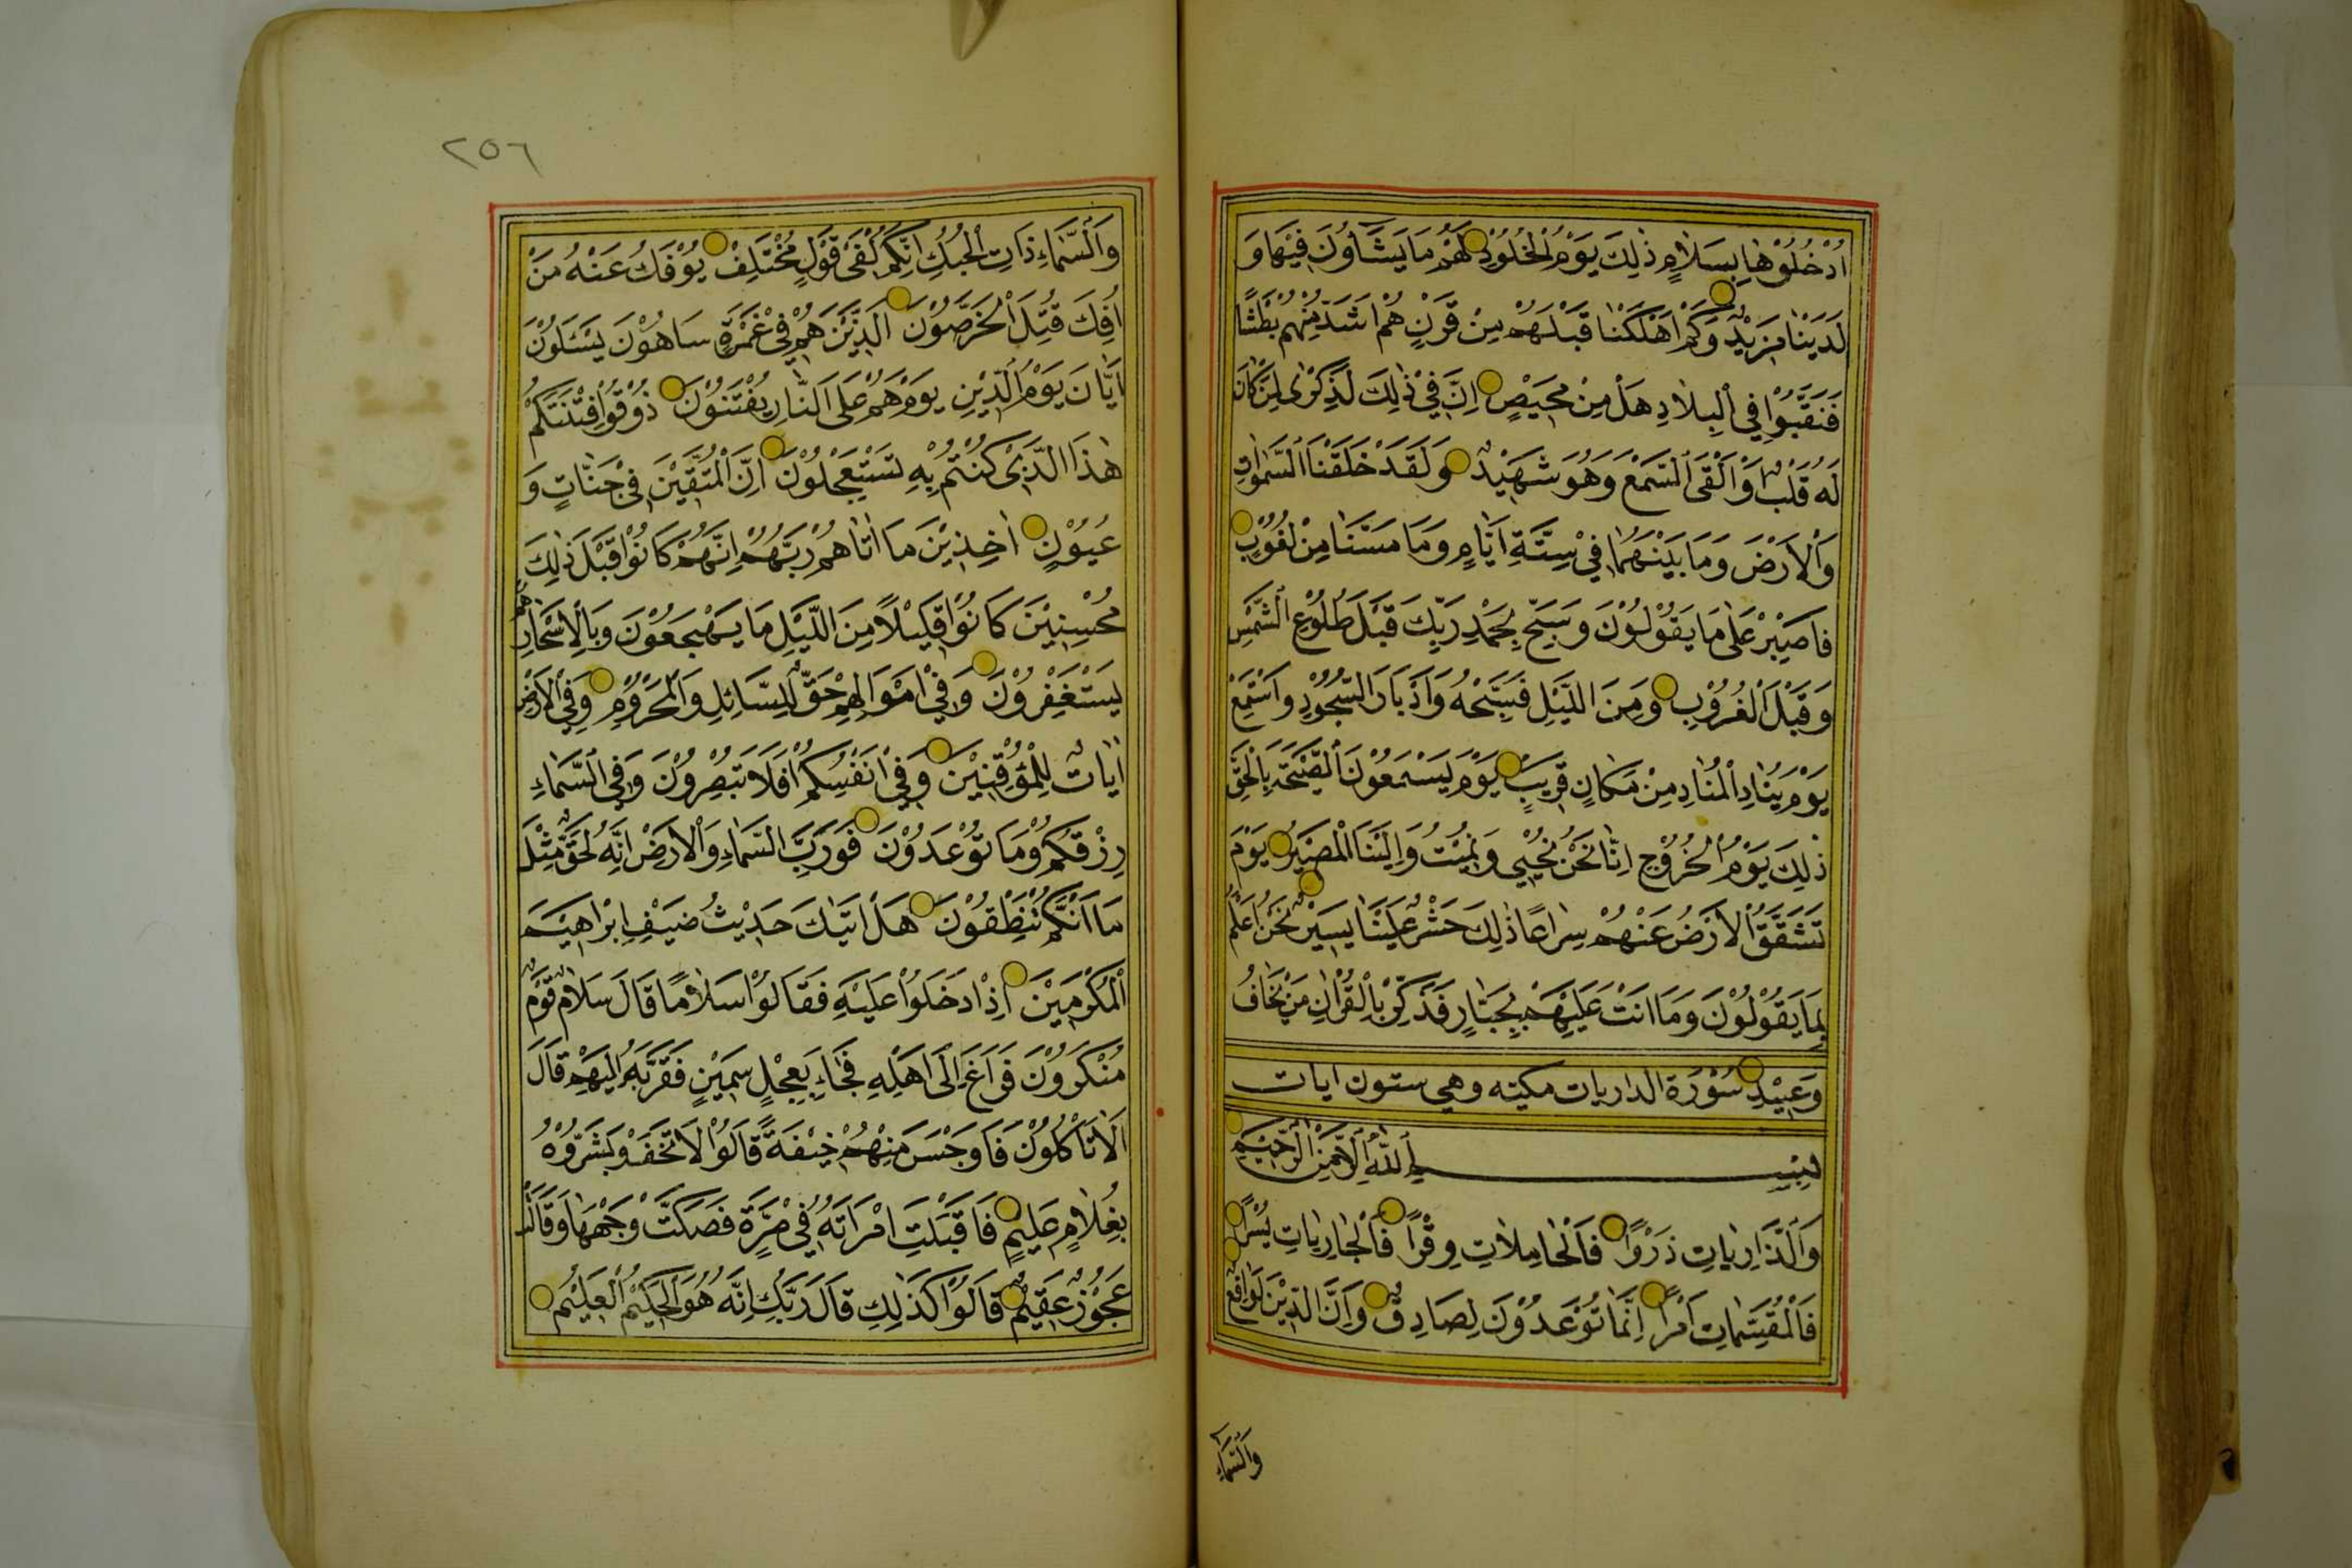 اُدْخُلُوْهَا بِسَلَامٍ ذٰلِكَ يَوْمُ الْخُلُوْدِ لَهُمْ مَا يَشَاؤُنَ فِيْهَا وَ
لَدَيْنَا مَزِيْدٌ وَكَمْ اَهْلَكْنَا قَبْلَهُمْ مِنْ قَرْنٍ هُمْ اَشَدُّ مِنْهُمْ بَطْشًا
فَنَقَّبُوْا فِي الْبِلَادِ هَلْ مِنْ مَحِيْصٍ اِنَّ فِيْ ذٰلِكَ لَذِكْرٰى لِمَنْ كَانَ
لَهُ قَلْبٌ اَوْ اَلْقَى السَّمْعَ وَهُوَ شَهِيْدٌ وَلَقَدْ خَلَقْنَا السَّمٰوَاتِ
وَالْاَرْضَ وَمَا بَيْنَهُمَا فِيْ سِتَّةِ اَيَّامٍ وَمَا مَسَّنَا مِنْ لُغُوْبٍ
فَاصْبِرْ عَلٰى مَا يَقُوْلُوْنَ وَسَبِّحْ بِحَمْدِ رَبِّكَ قَبْلَ طُلُوْعِ الشَّمْسِ
وَقَبْلَ الْغُرُوْبِ وَمِنَ اللَّيْلِ فَسَبِّحْهُ وَاَدْبَارَ السُّجُوْدِ وَاسْتَمِعْ
يَوْمَ يُنَادِ الْمُنَادِ مِنْ مَكَانٍ قَرِيْبٍ يَوْمَ يَسْمَعُوْنَ الصَّيْحَةَ بِالْحَقِّ
ذٰلِكَ يَوْمُ الْخُرُوْجِ اِنَّا نَحْنُ نُحْيِيْ وَنُمِيْتُ وَاِلَيْنَا الْمَصِيْرُ يَوْمَ
تَشَقَّقُ الْاَرْضُ عَنْهُمْ سِرَاعًا ذٰلِكَ حَشْرٌ عَلَيْنَا يَسِيْرٌ نَحْنُ اَعْلَمُ
بِمَا يَقُوْلُوْنَ وَمَا اَنْتَ عَلَيْهِمْ بِجَبَّارٍ فَذَكِّرْ بِالْقُرْاٰنِ مَنْ يَخَافُ
وَعِيْدِ سُوْرَة الذاريات مكيته وهي ستون ايات
بِسْمِ اللّٰهِ الرَّحْمٰنِ الرَّحِيْمِ
وَالذَّارِيَاتِ ذَرْوًا فَالْحَامِلَاتِ وِقْرًا فَالْجَارِيَاتِ يُسْرًا
فَالْمُقَسِّمَاتِ اَمْرًا اِنَّمَا تُوْعَدُوْنَ لَصَادِقٌ وَاِنَّ الدِّيْنَ لَوَاقِعٌ
وَالسَّمَاءِ
٢٥٦
وَالسَّمَاءِ ذَاتِ الْحُبُكِ اِنَّكُمْ لَفِيْ قَوْلٍ مُخْتَلِفٍ يُوْفَكُ عَنْهُ مَنْ
اُفِكَ قُتِلَ الْخَرَّصُوْنَ الَّذِيْنَ هُمْ فِيْ غَمْرَةٍ سَاهُوْنَ يَسْئَلُوْنَ
اَيَّانَ يَوْمُ الدِّيْنِ يَوْمَ هُمْ عَلَى النَّارِ يُفْتَنُوْنَ ذُوْقُوْا فِتْنَتَكُمْ
هٰذَا الَّذِيْ كُنْتُمْ بِهِ تَسْتَعْجِلُوْنَ اِنَّ الْمُتَّقِيْنَ فِيْ جَنَّاتٍ وَ
عُيُوْنٍ اٰخِذِيْنَ مَا اٰتَاهُمْ رَبُّهُمْ اِنَّهُمْ كَانُوْا قَبْلَ ذٰلِكَ
مُحْسِنِيْنَ كَانُوْا قَلِيْلًا مِنَ اللَّيْلِ مَا يَهْجَعُوْنَ وَبِالْاَسْحَارِ هُمْ
يَسْتَغْفِرُوْنَ وَفِيْ اَمْوَالِهِمْ حَقٌّ لِلسَّائِلِ وَالْمَحْرُوْمِ وَفِي الْاَرْضِ
اٰيَاتٌ لِلْمُوْقِنِيْنَ وَفِيْ اَنْفُسِكُمْ اَفَلَا تُبْصِرُوْنَ وَفِي السَّمَاءِ
رِزْقُكُمْ وَمَا تُوْعَدُوْنَ فَوَرَبِّ السَّمَاءِ وَالْاَرْضِ اِنَّهُ لَحَقٌّ مِثْلَ
مَا اَنَّكُمْ تَنْطِقُوْنَ هَلْ اَتٰيكَ حَدِيْثُ ضَيْفِ اِبْرَاهِيْمَ
الْمُكْرَمِيْنَ اِذْ دَخَلُوْا عَلَيْهِ فَقَالُوْا سَلَامًا قَالَ سَلَامٌ قَوْمٌ
مُنْكَرُوْنَ فَرَاغَ اِلَى اَهْلِهِ فَجَاءَ بِعِجْلٍ سَمِيْنٍ فَقَرَّبَهُ اِلَيْهِمْ قَالَ
اَلَا تَأْكُلُوْنَ فَاَوْجَسَ مِنْهُمْ خِيْفَةً قَالُوْا لَا تَخَفْ وَبَشَّرُوْهُ
بِغُلَامٍ عَلِيْمٍ فَاَقْبَلَتِ امْرَاَتُهُ فِيْ صَرَّةٍ فَصَكَّتْ وَجْهَهَا وَقَالَتْ
عَجُوْزٌ عَقِيْمٌ قَالُوْا كَذٰلِكِ قَالَ رَبُّكِ اِنَّهُ هُوَ الْحَكِيْمُ الْعَلِيْمُ